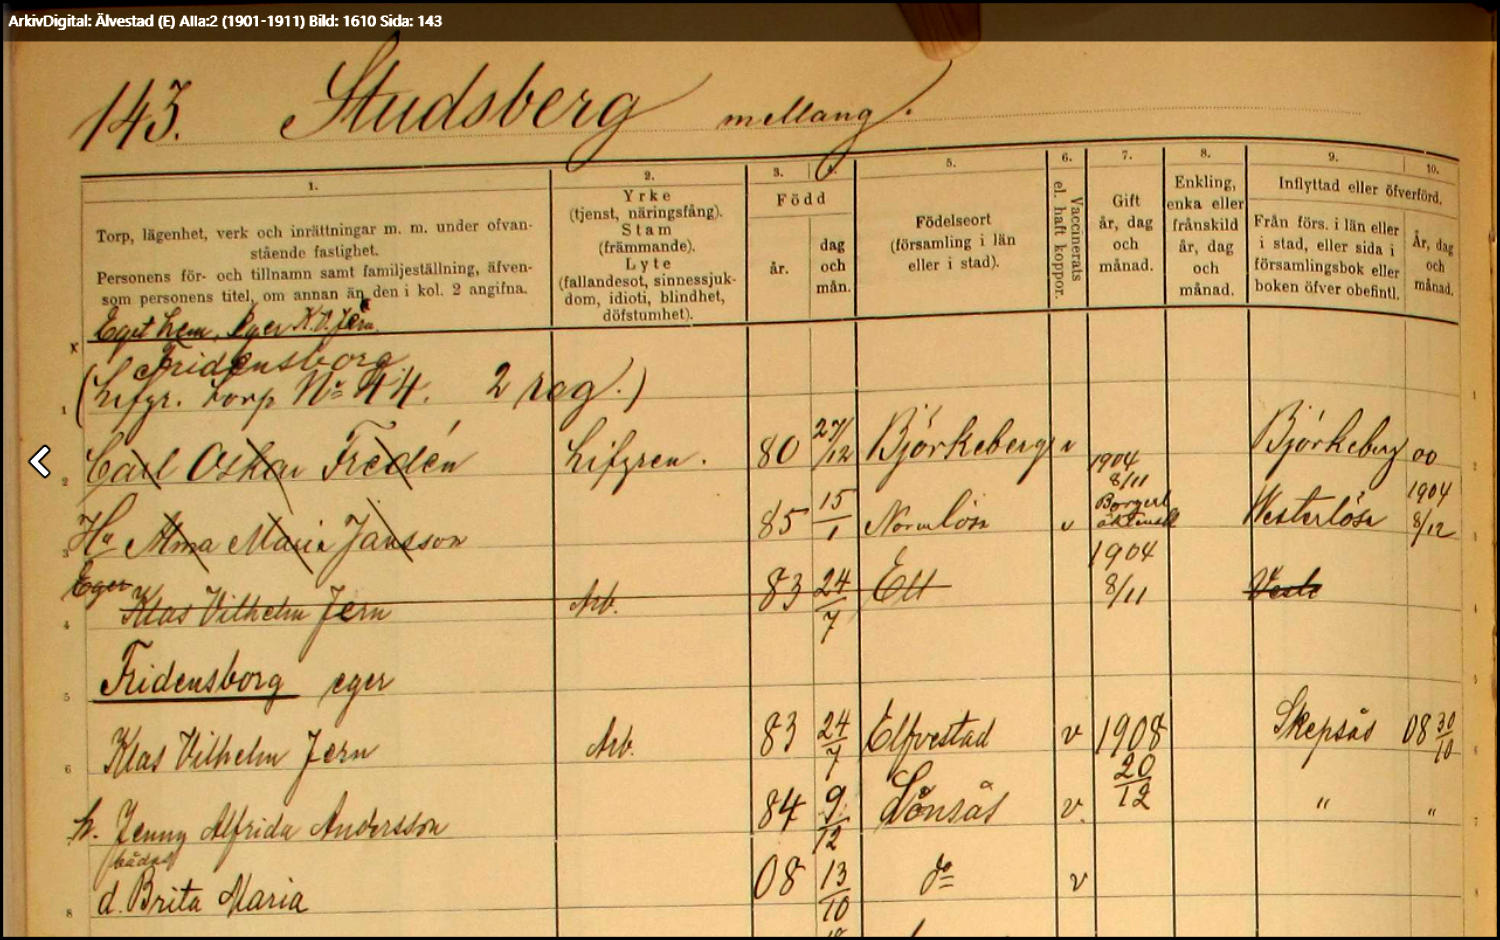 ArkivDigital: Älvestad (E) AIIa:2 (1901-1911) Bild: 1610 Sida: 143
143. Studsberg mellang.
1. 2. 3. 4. 5. 6. 7. 8. 9. 10.
Torp, lägenhet, verk och inrättningar m. m. under ofvan-
stående fastighet.
Personens för- och tillnamn samt familjeställning, äfven-
som personens titel, om annan än den i kol. 2 angifna.
Yrke
(tjenst, näringsfång).
Stam
(främmande).
Lyte
(fallandesot, sinnessjuk-
dom, idioti, blindhet,
döfstumhet).
Född
år.
dag
och
mån.
Födelseort
(församling i län
eller i stad).
Vaccinerats
el. haft koppor.
Gift
år, dag
och
månad.
Enkling,
enka eller
frånskild
år, dag
och
månad.
Inflyttad eller öfverförd.
Från förs. i län eller
i stad, eller sida i
församlingsbok eller
boken öfver obefintl.
År, dag
och
månad.
Eget hem. Eger K.V. Jern.
x Fridensborg
1 (Lifgr. torp No 44. 2 rag.) 1
2 Carl Oskar Fredén Lifgren. 80 27/12 Björkeberg v 1904 8/11 Björkeberg 00
Borgerl äktensk
3 Hu Alma Maria Jansson 85 15/1 Normlösa v 1904 8/11 Westerlösa 1904 8/12
Eger
4 Klas Vilhelm Jern Arb. 83 24/7 Elf Veste
5 Fridensborg eger
6 Klas Vilhelm Jern Arb. 83 24/7 Elfvestad v 1908 20/12 Skepsås 08 30/10
h. Jenny Alfrida Andersson 84 9/12 Lönsås v. " "
bådas
8 d. Brita Maria 08 13/10 do v